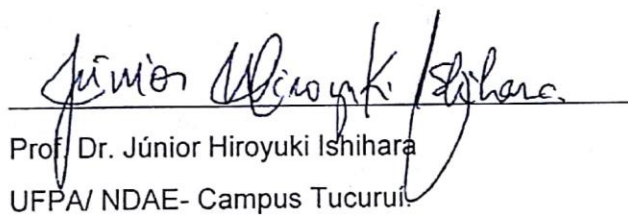 Júnior Hiroyuki Ishihara
Prof. Dr. Júnior Hiroyuki Ishihara
UFPA/ NDAE- Campus Tucuruí.